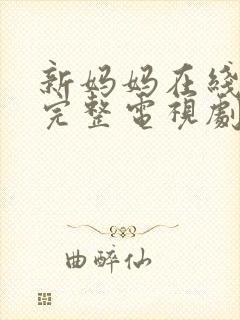 新妈妈在线
完整電視劇
曲醉仙